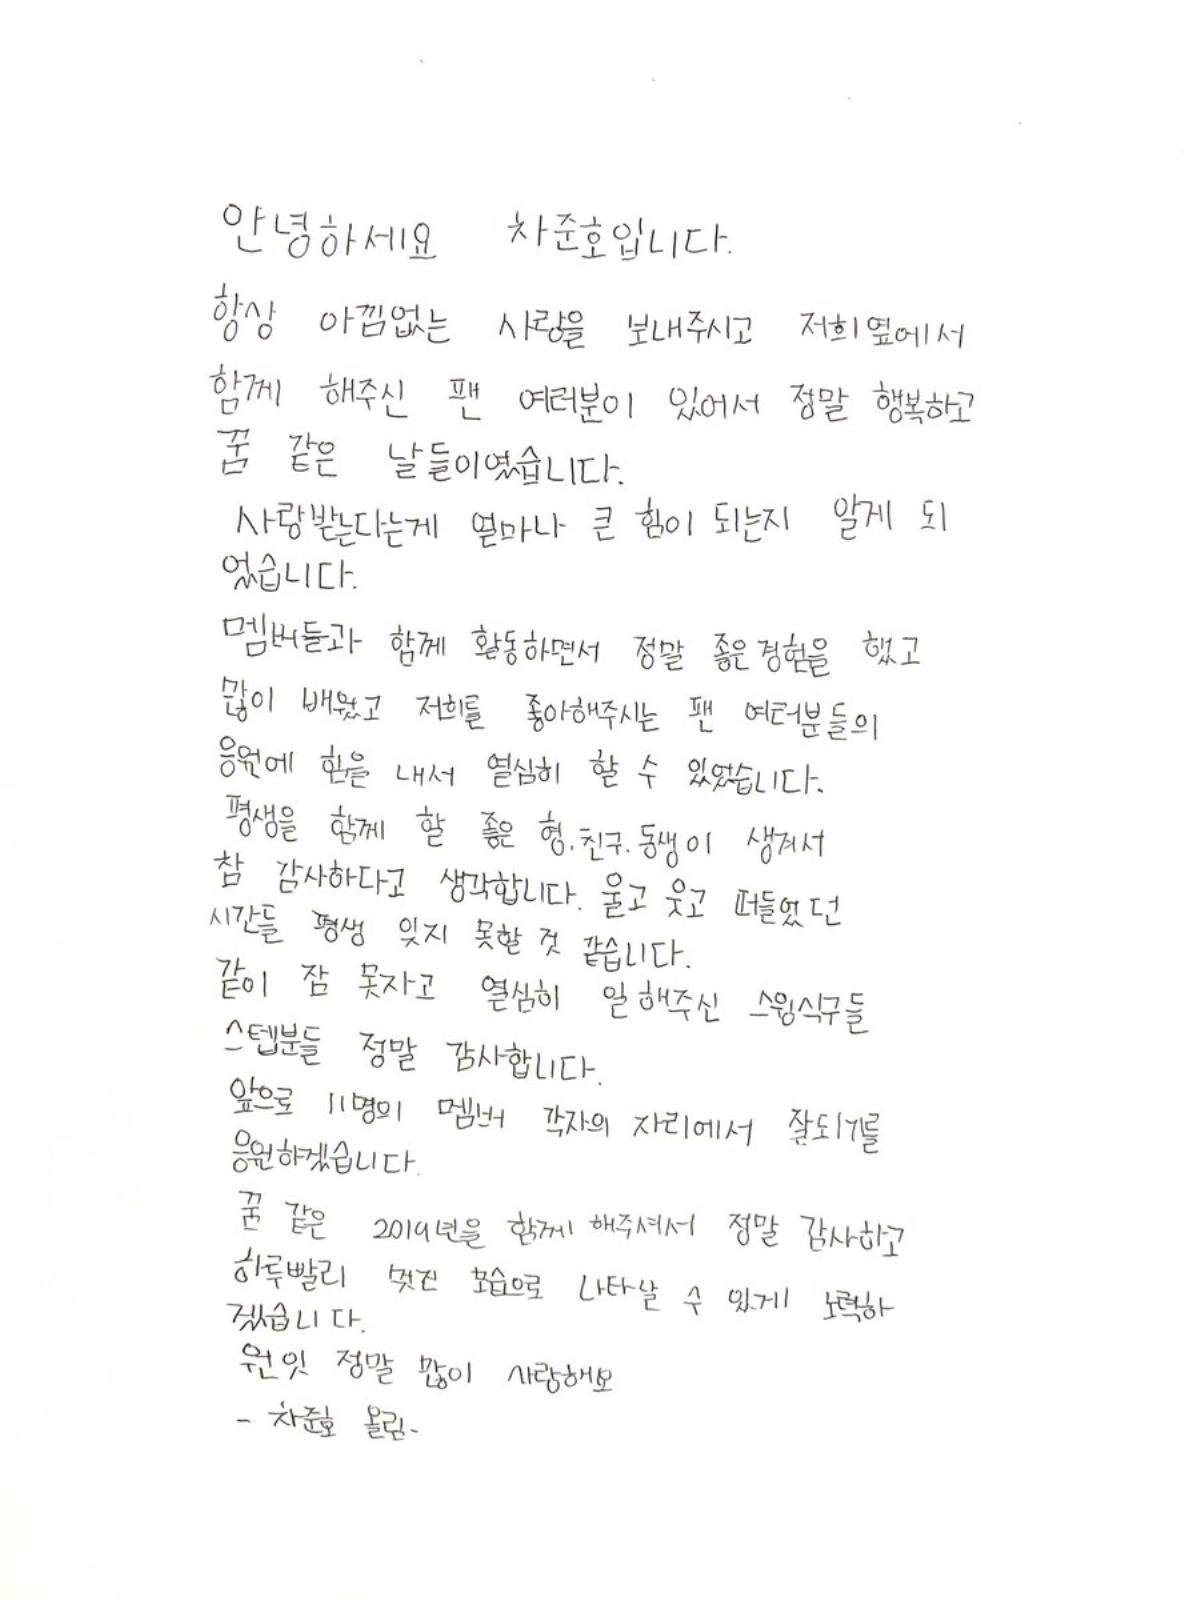 안녕하세요 차준호입니다.
항상 아낌없는 사랑을 보내주시고 저희옆에서
함께 해주신 팬 여러분이 있어서 정말 행복하고
꿈 같은 날들이였습니다.
사랑받는다는게 얼마나 큰 힘이 되는지 알게 되
었습니다.
멤버들과 함께 활동하면서 정말 좋은경험을 했고
많이 배웠고 저희를 좋아해주시는 팬 여러분들의
응원에 힘을 내서 열심히 할 수 있었습니다.
평생을 함께 할 좋은 형.친구.동생이 생겨서
참 감사하다고 생각합니다. 울고 웃고 떠들었던
시간들 평생 잊지 못할 것 같습니다.
같이 잠 못자고 열심히 일해주신 스윙식구들
스텝분들 정말 감사합니다.
앞으로 11명의 멤버 각자의 자리에서 잘되기를
응원하겠습니다.
꿈 같은 2019년을 함께 해주셔서 정말 감사하고
하루빨리 멋진 모습으로 나타날 수 있게 노력하
겠습니다.
원잇 정말 많이 사랑해요
- 차준호 올림-